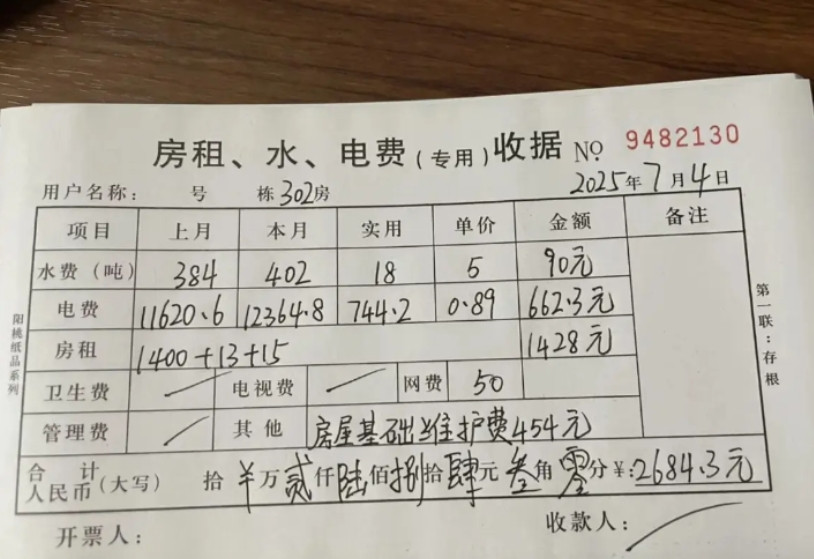 房租、水、电费(专用)收据 No 9482130
用户名称: 号 栋302房 2025年7月4日
项目 上月 本月 实用 单价 金额 备注
水费(吨) 384 402 18 5 90元
电费 11620.6 12364.8 744.2 0.89 662.3元
房租 1400+13+15 1428元
卫生费 电视费 网费 50
管理费 其他 房屋基础维护费454元
合计人民币(大写) 拾 ¥万贰仟陆佰捌拾肆元叁角零分¥:2684.3元
开票人: 收款人:
阳桃纸品系列
第一联:存根